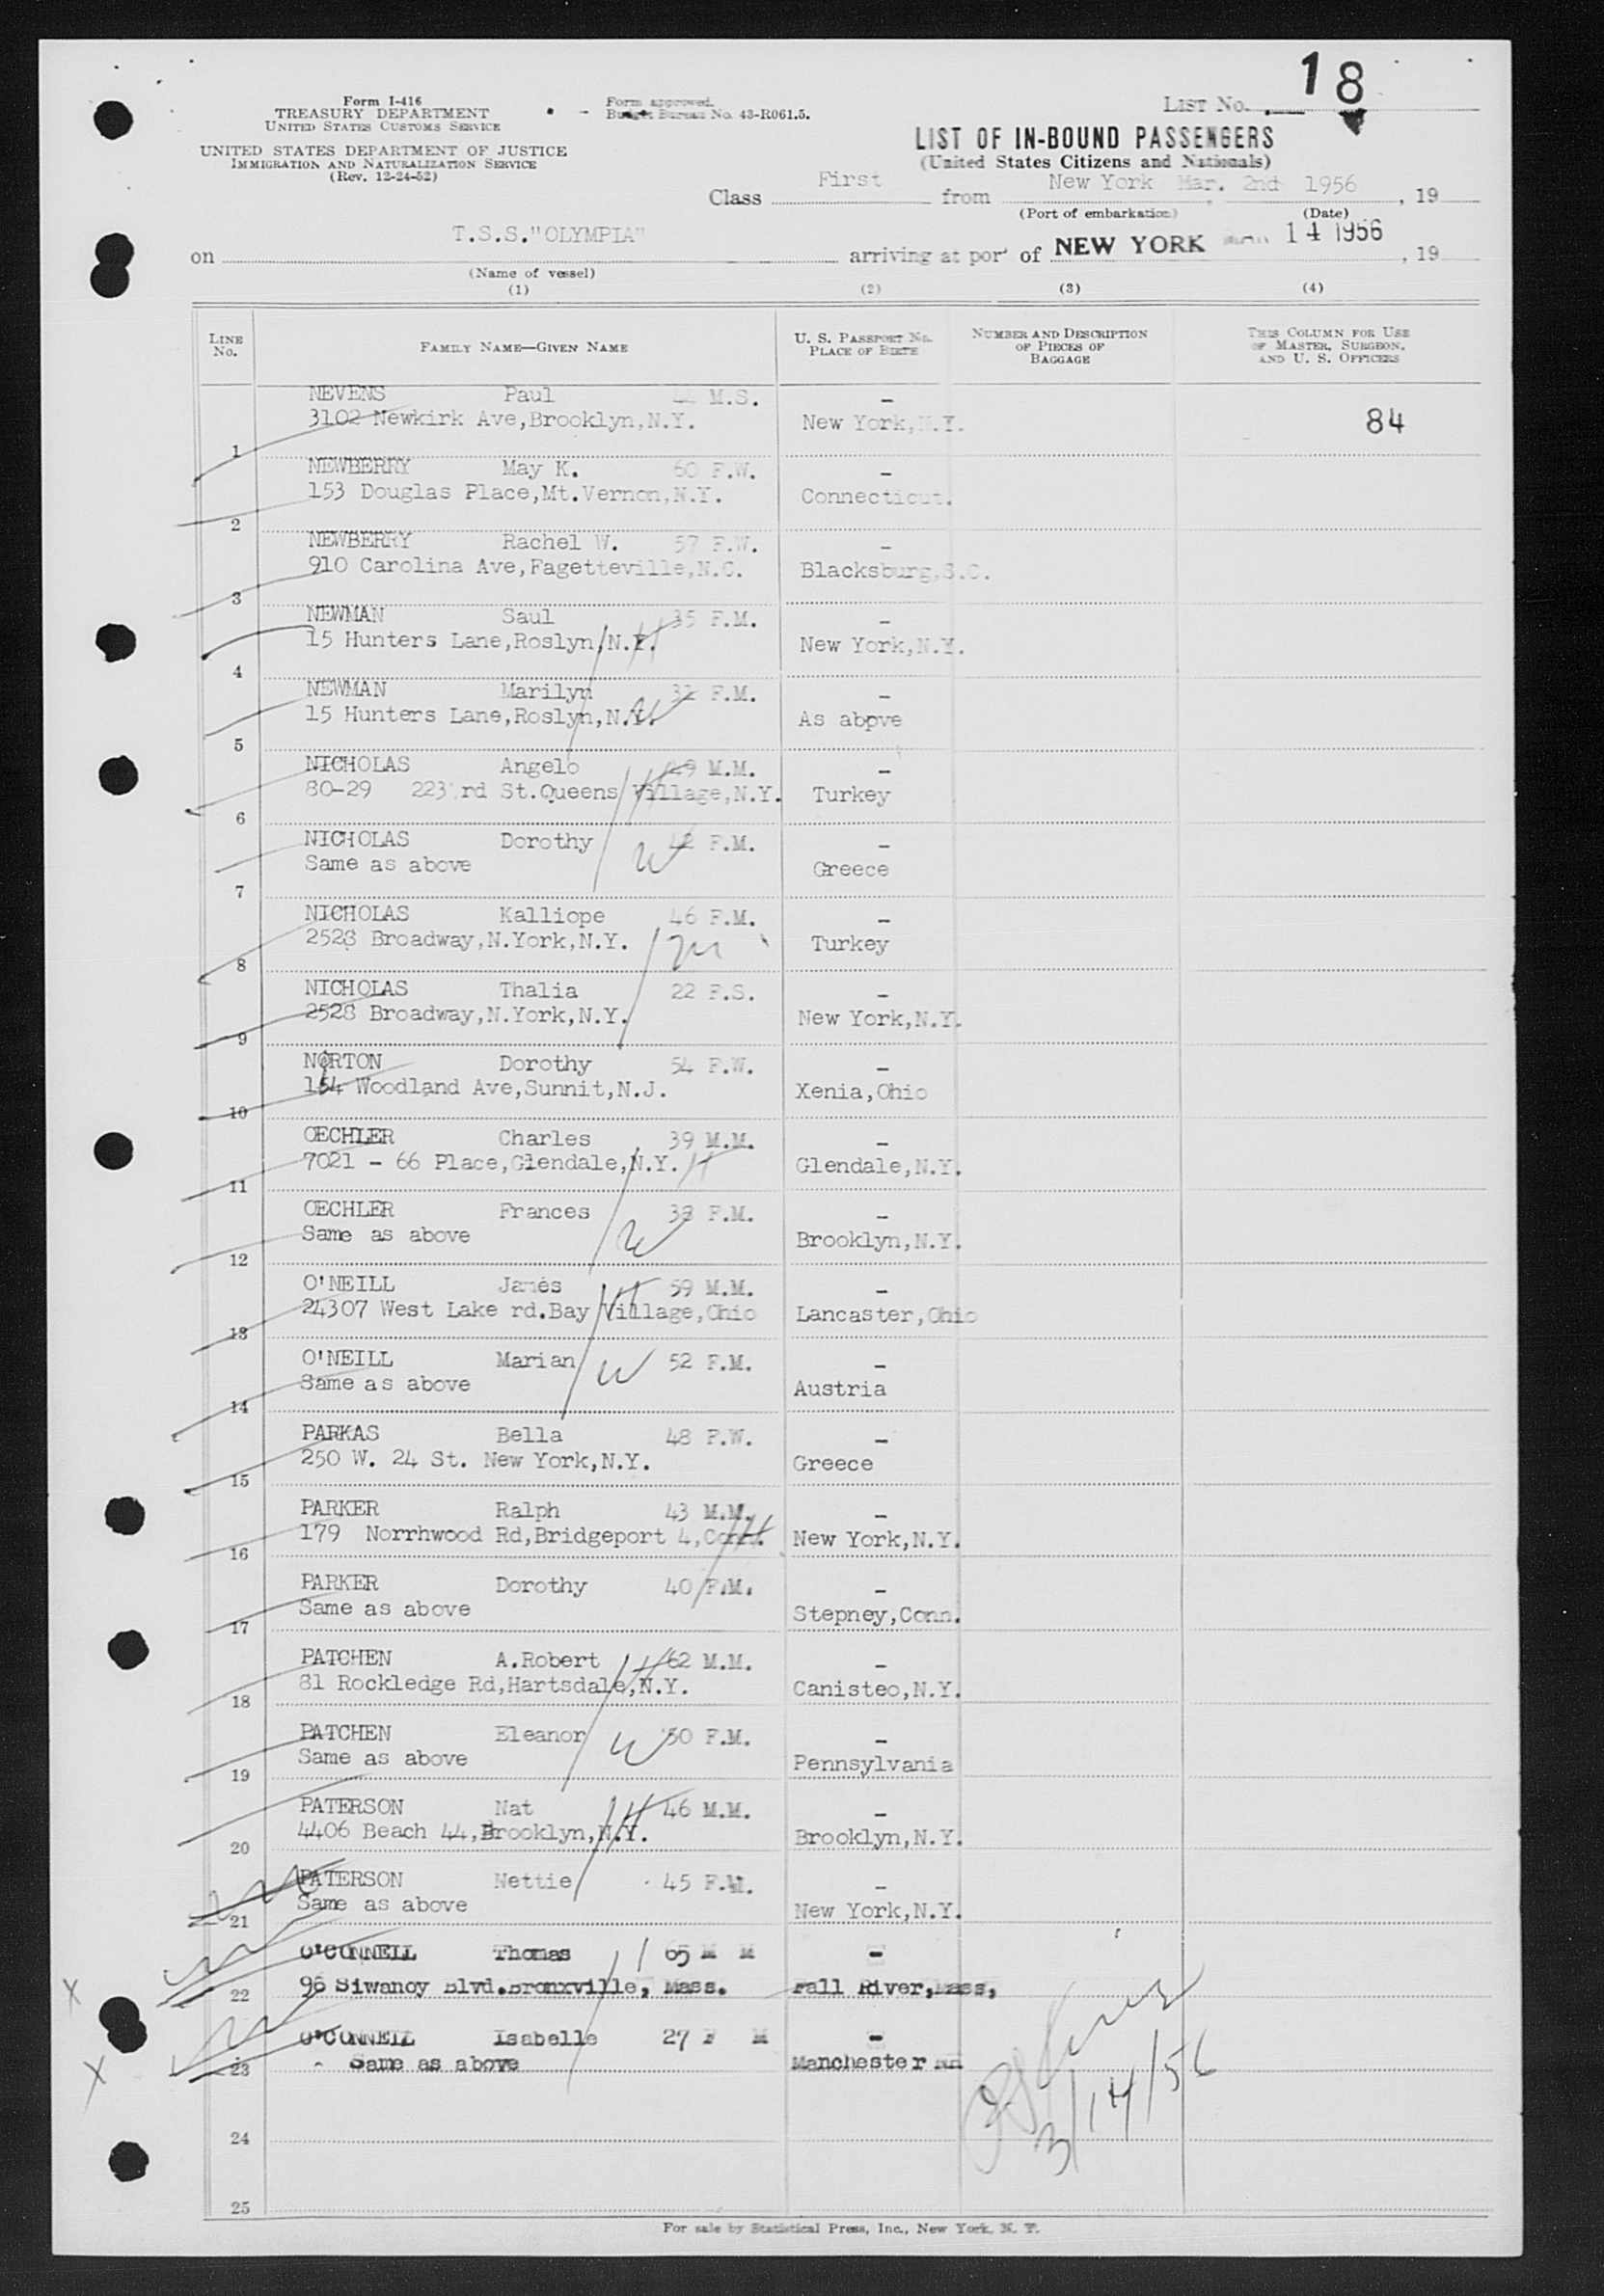 18
Form I-416
TREASURY DEPARTMENT
UNITED STATES CUSTOMS SERVICE
UNITED STATES DEPARTMENT OF JUSTICE
IMMIGRATION AND NATURALIZATION SERVICE
(Rev. 12-24-52)
Form approved.
Budget Bureau No. 43-R061.5.
LIST NO.
LIST OF IN-BOUND PASSENGERS
(United States Citizens and Nationals)
Class First from New York Mar. 2nd 1956, 19
(Port of embarkation) (Date)
on T.S.S."OLYMPIA" arriving at port of NEW YORK 14 1956, 19
(Name of vessel)
(1) (2) (3) (4)
LINE No. FAMILY NAME—GIVEN NAME U. S. PASSPORT No. PLACE OF BIRTH NUMBER AND DESCRIPTION OF PIECES OF BAGGAGE THIS COLUMN FOR USE OF MASTER, SURGEON, AND U. S. OFFICERS
NEVENS Paul M.S. -
3102 Newkirk Ave,Brooklyn,N.Y. New York,N.Y. 84
1
NEWBERRY May K. 60 F.W. -
153 Douglas Place,Mt.Vernon,N.Y. Connecticut.
2
NEWBERRY Rachel W. 57 F.W. -
910 Carolina Ave,Fagetteville,N.C. Blacksburg,S.C.
3
NEWMAN Saul 35 F.M. -
15 Hunters Lane,Roslyn,N.Y. H New York,N.Y.
4
NEWMAN Marilyn 32 F.M. -
15 Hunters Lane,Roslyn,N.Y. W As above
5
NICHOLAS Angelo 49 M.M. -
80-29 223 rd St.Queens Village,N.Y. H Turkey
6
NICHOLAS Dorothy 42 F.M. -
Same as above W Greece
7
NICHOLAS Kalliope 46 F.M. -
2528 Broadway,N.York,N.Y. M Turkey
8
NICHOLAS Thalia 22 F.S. -
2528 Broadway,N.York,N.Y. New York,N.Y.
9
NORTON Dorothy 54 F.W. -
154 Woodland Ave,Sunnit,N.J. Xenia,Ohio
10
OECHLER Charles 39 M.M. -
7021 - 66 Place,Glendale,N.Y. H Glendale,N.Y.
11
OECHLER Frances 38 F.M. -
Same as above W Brooklyn,N.Y.
12
O'NEILL James H 59 M.M. -
24307 West Lake rd.Bay Village,Ohio Lancaster,Ohio
13
O'NEILL Marian W 52 F.M. -
Same as above Austria
14
PARKAS Bella 48 F.W. -
250 W. 24 St. New York,N.Y. Greece
15
PARKER Ralph 43 M.M. -
179 Norrhwood Rd,Bridgeport 4,Conn. H New York,N.Y.
16
PARKER Dorothy 40 F.M. -
Same as above Stepney,Conn.
17
PATCHEN A.Robert H 62 M.M. -
81 Rockledge Rd,Hartsdale,N.Y. Canisteo,N.Y.
18
PATCHEN Eleanor W 50 F.M. -
Same as above Pennsylvania
19
PATERSON Nat H 46 M.M. -
4406 Beach 44,Brooklyn,N.Y. Brooklyn,N.Y.
20
PATERSON Nettie 45 F.M. -
Same as above New York,N.Y.
21
O'CONNELL Thomas 65 M M -
X 96 Siwanoy Blvd.Bronxville, Mass. Fall River,Mass,
22
O'CONNELL Isabelle 27 F M -
X Same as above Manchester NH
23
3/14/56
24
25
For sale by Statistical Press, Inc., New York, N. Y.